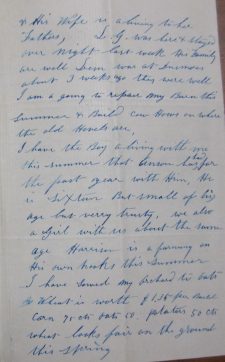 & His Wife is a living to her
Fathers, L. G. was here & stayed
over night last week His Family
are well Dem was at
about 3 weeks ago they were well
I am a going to repair my Barn this
Summer & Build Cow House on where
the old Hovels are,
I have the Boy a living with me
this summer that had
for the past year with Him, He
is Sixteen But small of his
age but verry trusty, we also
a Girl with us about the same
age Harrison is a farming on
His own hooks this Summer
I have sowed my Orchard to Oats
Wheat is worth $1.35 per Bushel
Corn 70 cts Oats potatoes 50 cts
what looks fair on the ground
this Spring